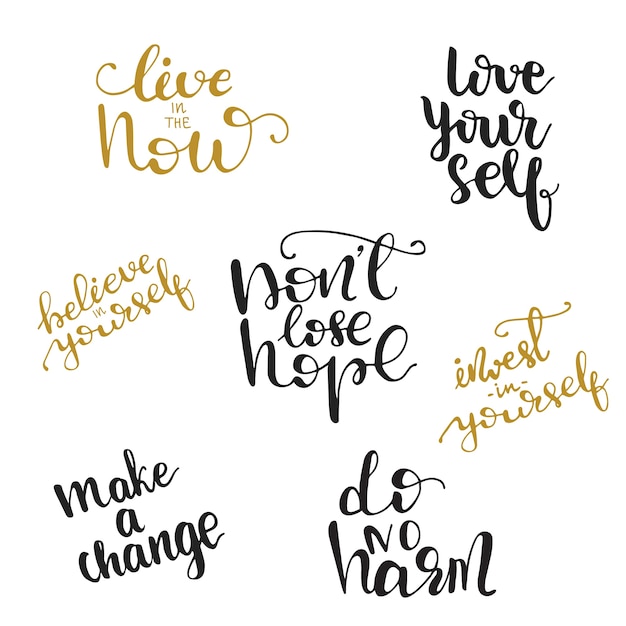 live
IN
THE
Now
love
your
self
believe
in
yourself
Don't
lose
hope
invest
-in-
yourself
make
a
change
do
NO
harm